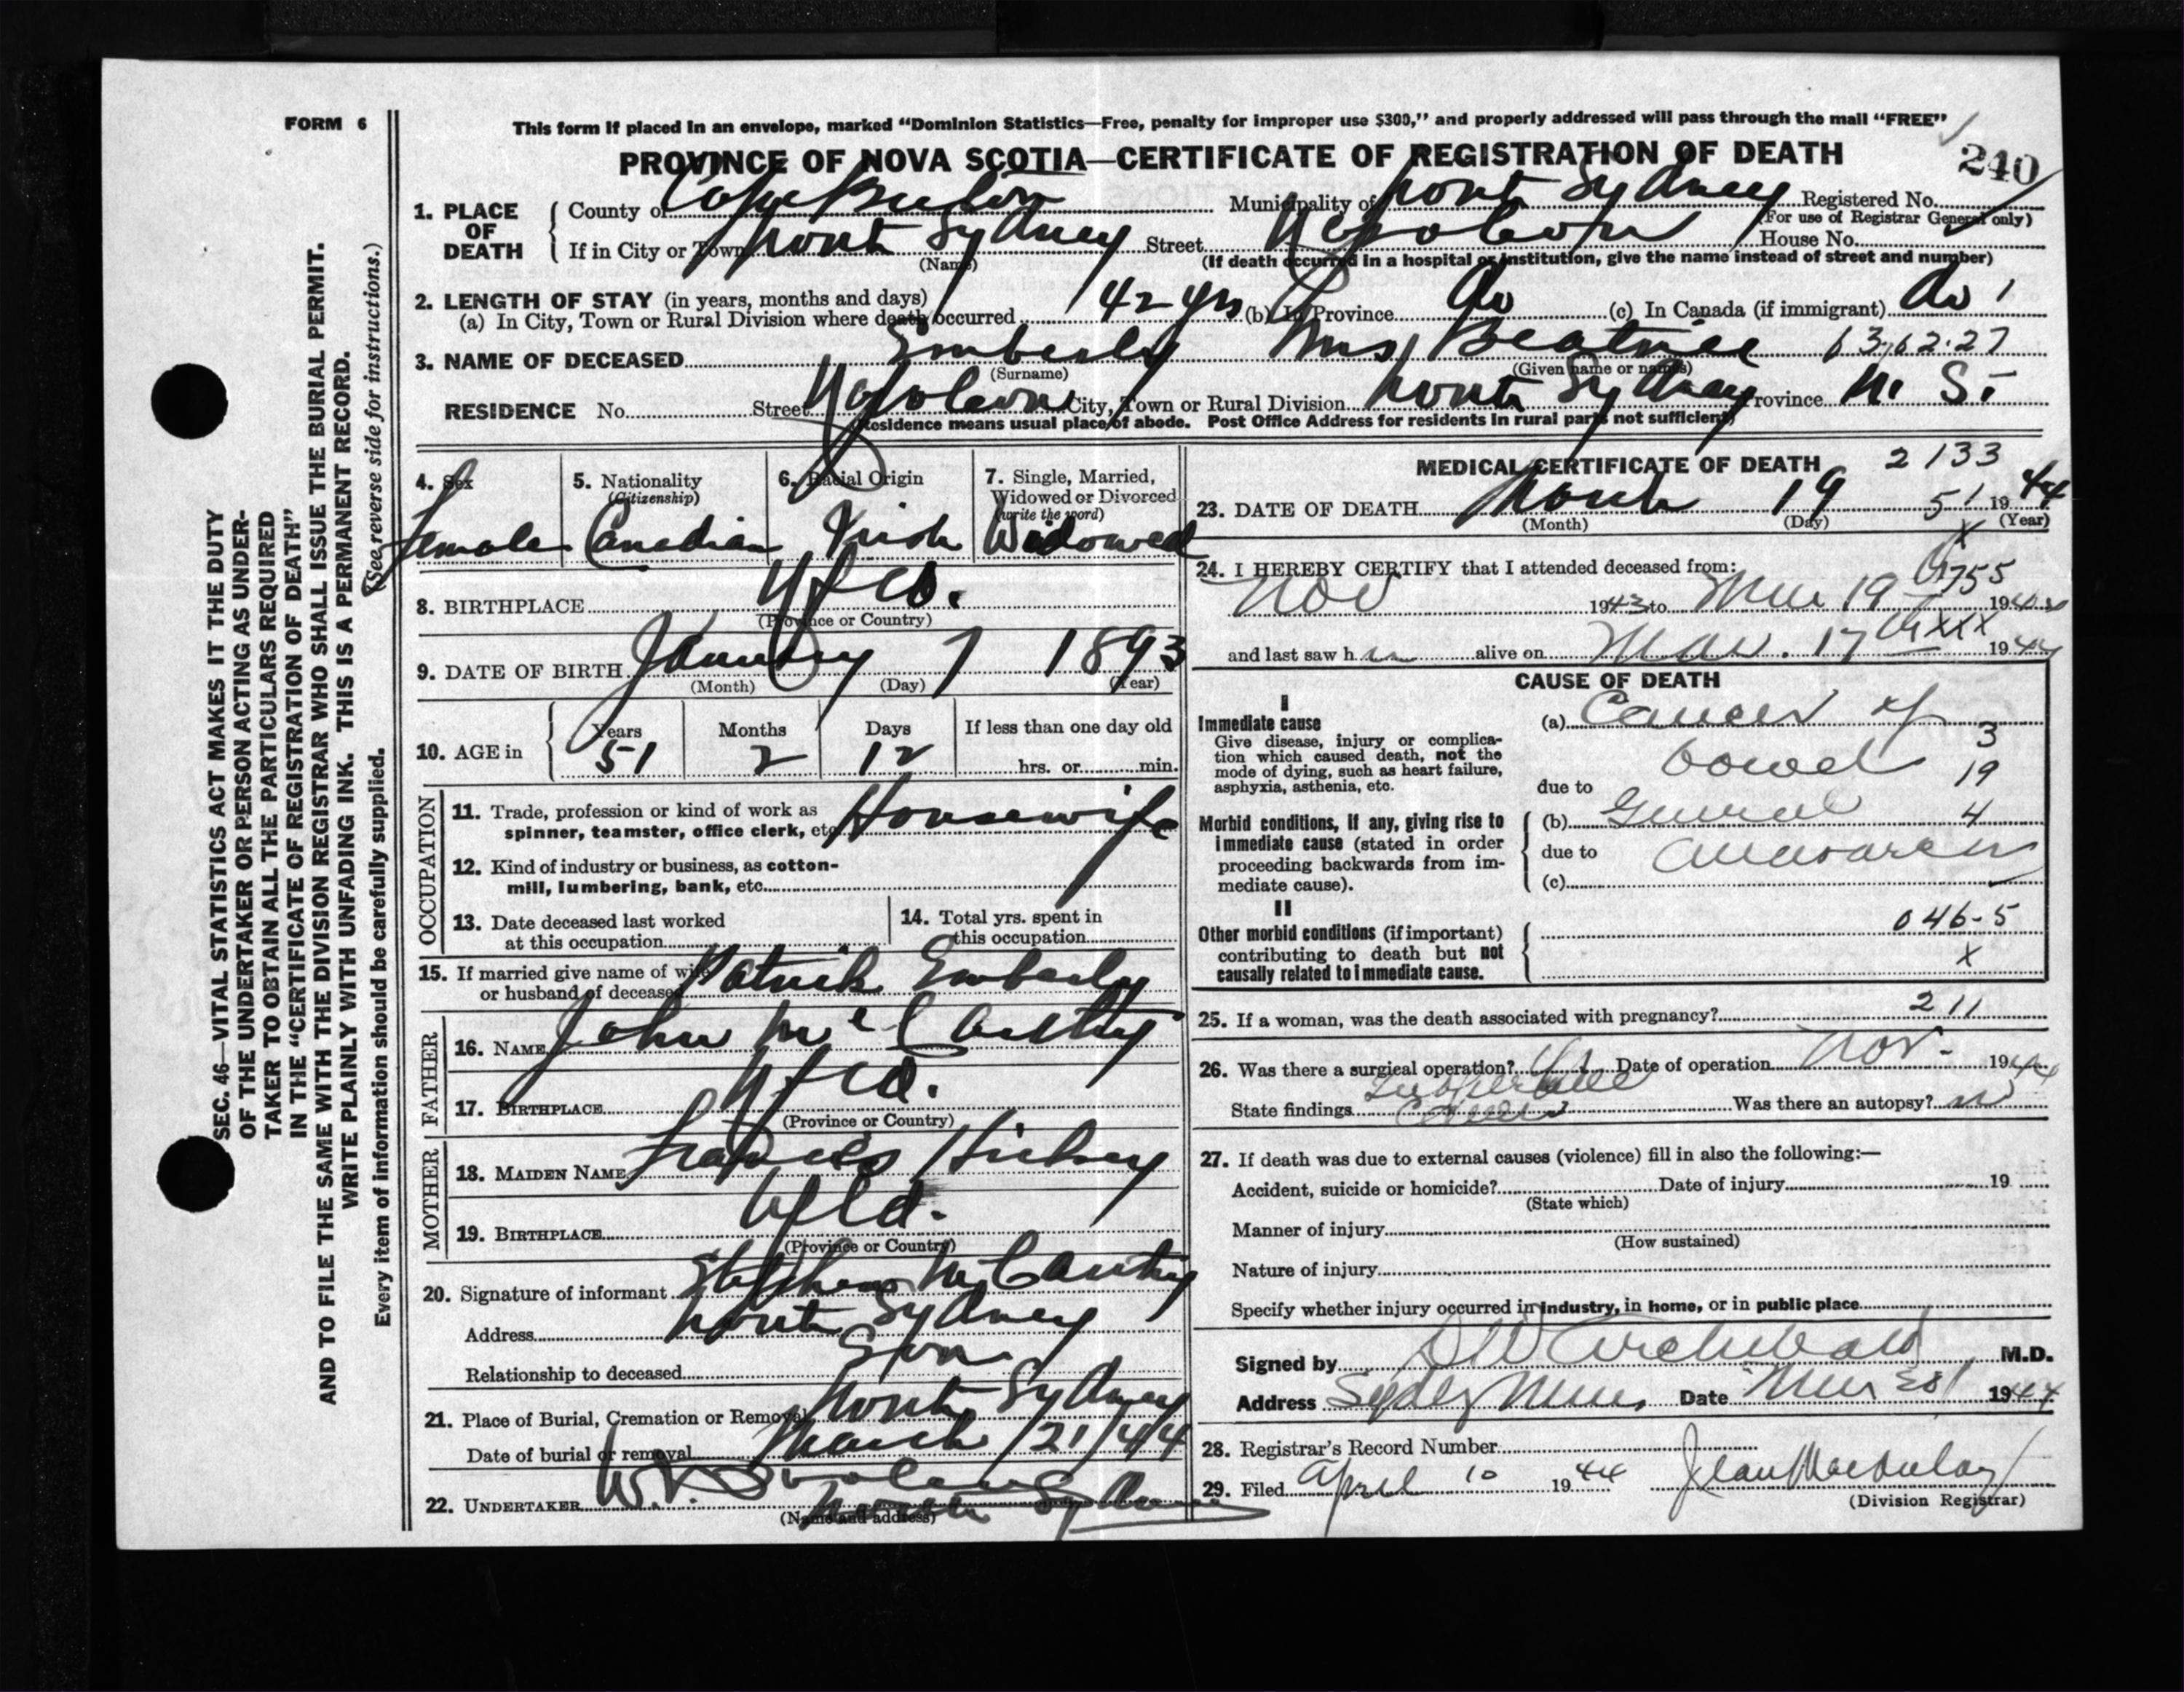 FORM 6
This form if placed in an envelope, marked "Dominion Statistics—Free, penalty for improper use $300," and properly addressed will pass through the mail "FREE"
PROVINCE OF NOVA SCOTIA—CERTIFICATE OF REGISTRATION OF DEATH
240
1. PLACE OF DEATH
County of Cape Breton Municipality of North Sydney Registered No.
(For use of Registrar General only)
If in City or Town North Sydney Street Napoleon House No.
(Name) (If death occurred in a hospital or institution, give the name instead of street and number)
2. LENGTH OF STAY (in years, months and days)
(a) In City, Town or Rural Division where death occurred 42 yrs (b) In Province do (c) In Canada (if immigrant) do 1
3. NAME OF DECEASED Emberly Mrs Beatrice 63,62.27
(Surname) (Given name or names)
RESIDENCE No. Street Napoleon City, Town or Rural Division North Sydney Province N. S.
Residence means usual place of abode. Post Office Address for residents in rural parts not sufficient)
4. Sex 5. Nationality (Citizenship) 6. Racial Origin 7. Single, Married, Widowed or Divorced (write the word)
Female Canadian Irish Widowed
8. BIRTHPLACE Nfld.
(Province or Country)
9. DATE OF BIRTH January 7 1893
(Month) (Day) (Year)
10. AGE in Years Months Days If less than one day old
51 2 12 hrs. or min.
OCCUPATION
11. Trade, profession or kind of work as spinner, teamster, office clerk, etc. Housewife
12. Kind of industry or business, as cotton-mill, lumbering, bank, etc.
13. Date deceased last worked at this occupation
14. Total yrs. spent in this occupation
15. If married give name of wife or husband of deceased Patrick Emberly
FATHER
16. NAME John McCarthy
17. BIRTHPLACE Nfld.
(Province or Country)
MOTHER
18. MAIDEN NAME Frances Hickey
19. BIRTHPLACE Nfld.
(Province or Country)
20. Signature of informant Stephen McCarthy
Address North Sydney
Relationship to deceased Son
21. Place of Burial, Cremation or Removal North Sydney
Date of burial or removal March /21/44
22. UNDERTAKER
North Sydney
(Name and address)
MEDICAL CERTIFICATE OF DEATH 2133
23. DATE OF DEATH March 19 51 1944
(Month) (Day) (Year)
24. I HEREBY CERTIFY that I attended deceased from:
Nov 1943 to Mar 19 755 1944
and last saw h alive on Mar. 17 XXX 1944
CAUSE OF DEATH
I
Immediate cause
Give disease, injury or complication which caused death, not the mode of dying, such as heart failure, asphyxia, asthenia, etc.
(a) Cancer of 3
bowel 19
due to
Morbid conditions, if any, giving rise to immediate cause (stated in order proceeding backwards from immediate cause).
(b) General 4
due to
(c)
II
Other morbid conditions (if important) contributing to death but not causally related to immediate cause.
046-5
X
25. If a woman, was the death associated with pregnancy? 211
26. Was there a surgical operation? Yes Date of operation Nov - 1944
State findings Was there an autopsy? no
27. If death was due to external causes (violence) fill in also the following:—
Accident, suicide or homicide? Date of injury 19
(State which)
Manner of injury
(How sustained)
Nature of injury
Specify whether injury occurred in industry, in home, or in public place
Signed by Archibald M.D.
Address Sydney Mines Date Mar 1944
28. Registrar's Record Number
29. Filed April 10 1944 Jean
(Division Registrar)
SEC. 46—VITAL STATISTICS ACT MAKES IT THE DUTY
OF THE UNDERTAKER OR PERSON ACTING AS UNDER-
TAKER TO OBTAIN ALL THE PARTICULARS REQUIRED
IN THE "CERTIFICATE OF REGISTRATION OF DEATH"
AND TO FILE THE SAME WITH THE DIVISION REGISTRAR WHO SHALL ISSUE THE BURIAL PERMIT.
WRITE PLAINLY WITH UNFADING INK. THIS IS A PERMANENT RECORD.
Every item of information should be carefully supplied. (See reverse side for instructions.)